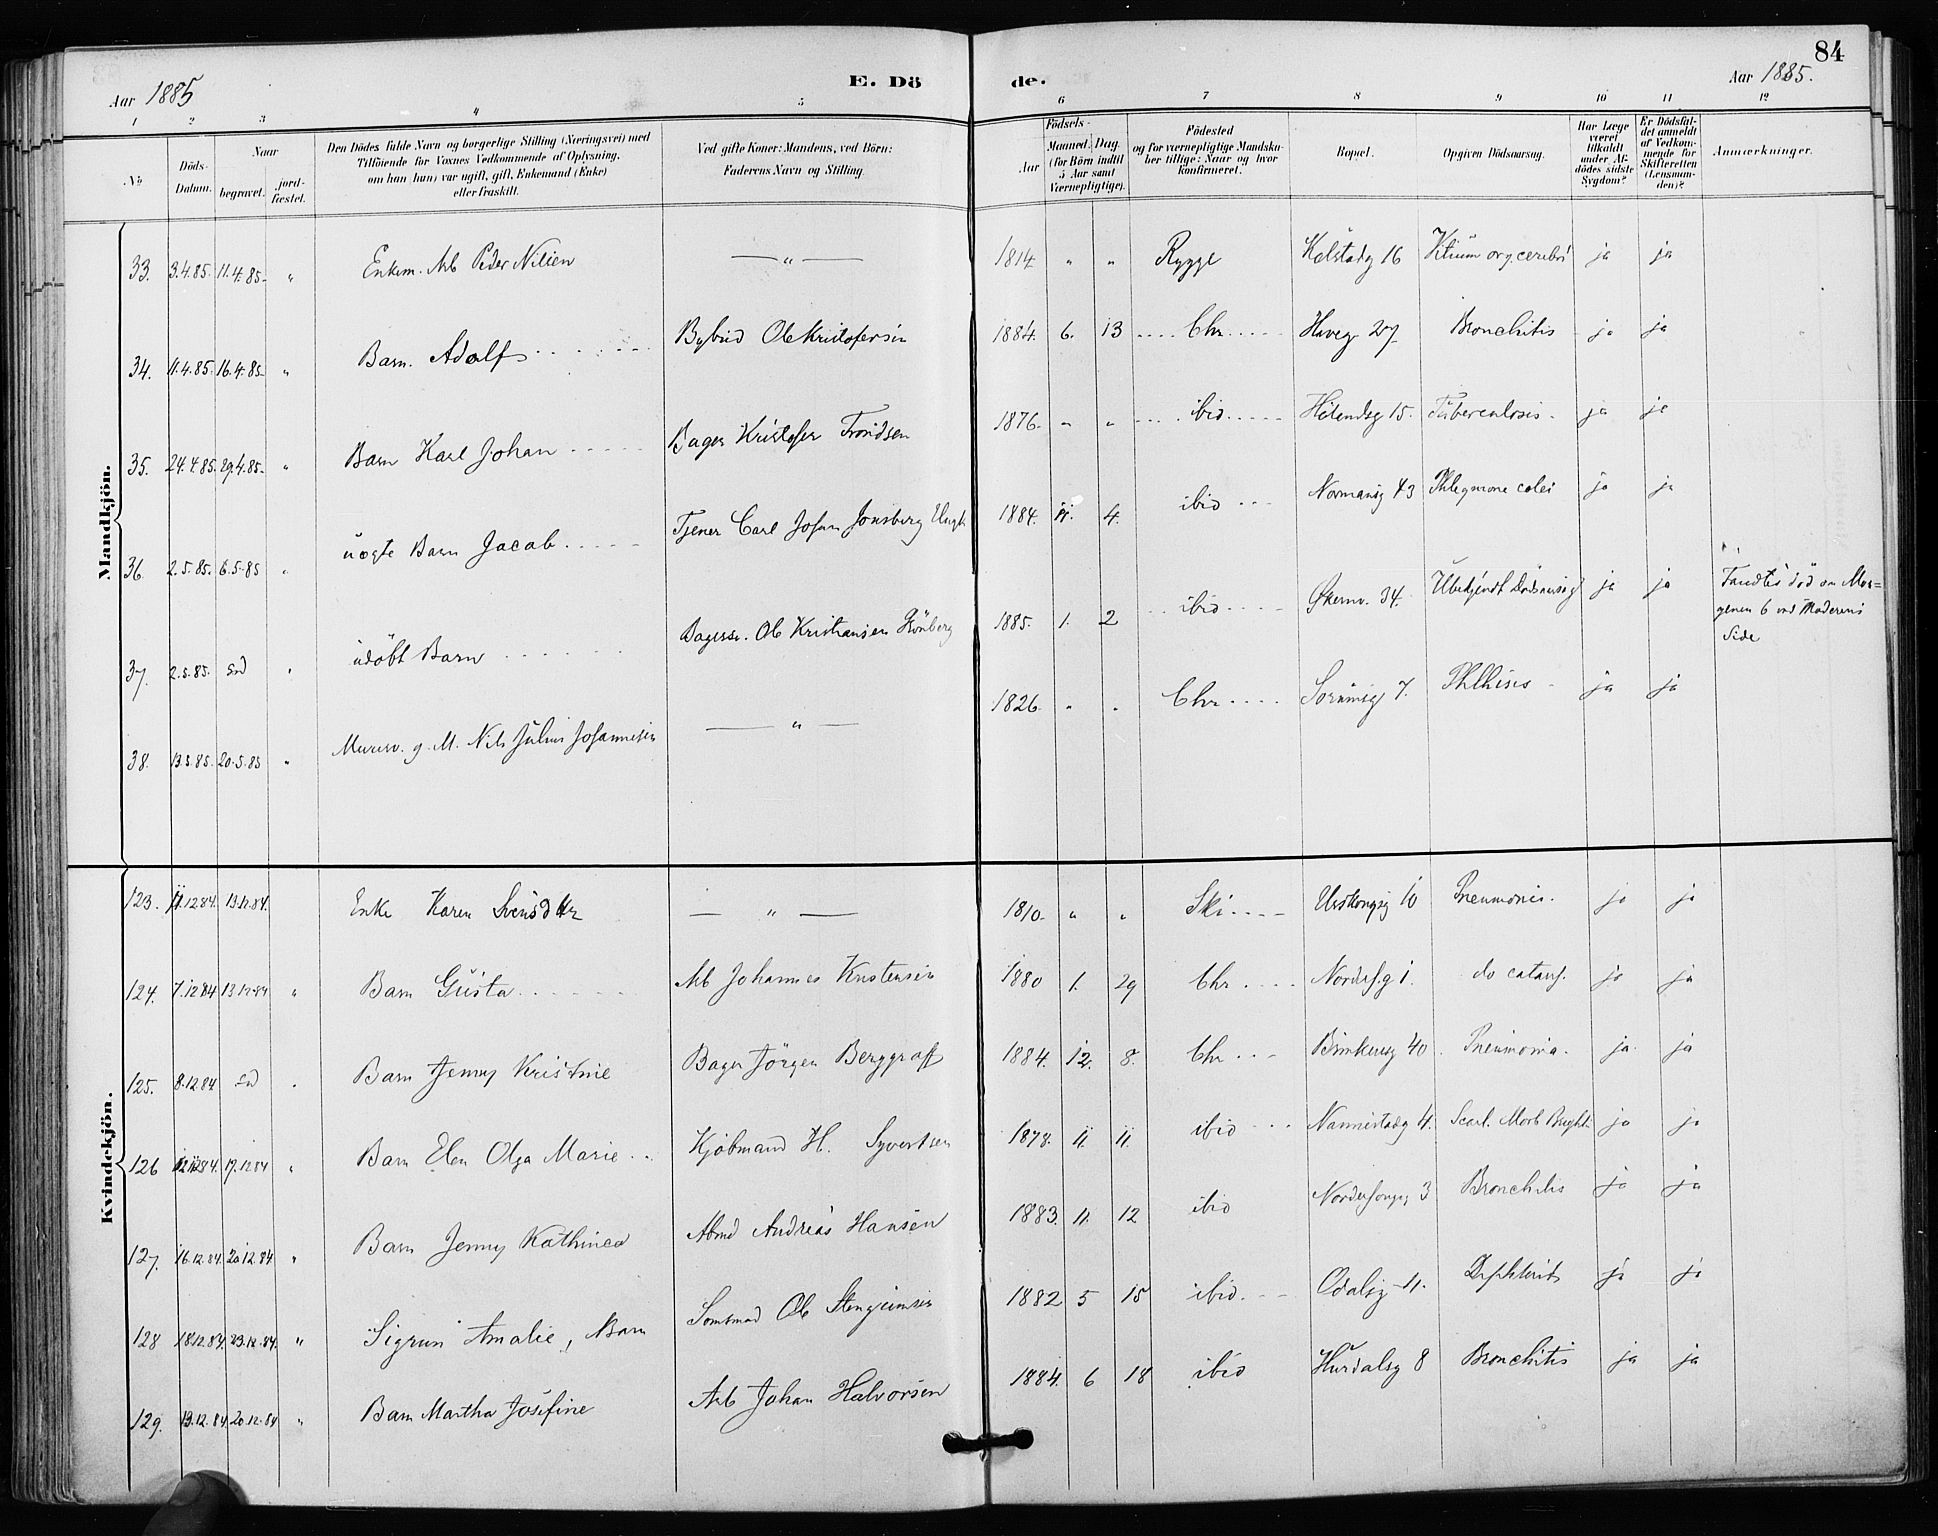 84
Aar 1885
E. Dö
de.
Aar 1885.
1 2 3 4 5 6 7 8 9 10 11 12
No
Döds-
Datum.
Naar
begravet.
jord-
fæstet.
Den Dödes fulde Navn og borgerlige Stilling (Næringsvei) med
Tilföiende for Voxnes Vedkommende af Oplysning,
om han (hun) var ugift, gift, Enkemand (Enke)
eller fraskilt.
Ved gifte Koner: Mandens, ved Börn:
Faderens Navn og Stilling.
Födsels-
Aar
Maaned. Dag.
(for Börn indtil
5 Aar samt
Værnepligtige).
Födested
og for værnepligtige Mandska-
ber tillige: Naar og hvor
konfirmeret.
Bopæl.
Opgiven Dödsaarsag.
Har Læge
været
tilkaldt
under Af-
dödes sidste
Sygdom?
Er Dödsfal-
det anmeldt
af Vedkom-
mende for
Skifteretten
(Lensman-
den)?
Anmærkninger.
Mandkjön.
33. 3.4.85. 11.4.85. " Enkem. Arb Peder Nilsen — " — 1814 " " Rygge Kølstadg 16 Vitium org. cerebri ja ja
34. 11.4.85. 16.4.85. " Barn. Adolf Bybud Ole Kristofersen 1884. 6. 13 Chr Haveg 27 Bronchitis ja ja
35. 24.4.85. 29.4.85. " Barn Karl Johan Bager Kristofer Frondsen 1876. " " ibid Hølendsg 15. Tuberculosis ja ja
36 2.5.85. 6.5.85 " uægte Barn Jacob Tjener Carl Johan Jonsberg Ungk 1884. 11. 4. ibid Normansg 43 Phlegmone colei ja ja
37. 2.5.85. sed " udøbt Barn Bagersv. Ole Kristiansen 1885. 1. 2 ibid Økernv. 34. Ubekjendt Dødsaarsag ja ja Fandtes død om Mor=
genen 6 ved Moderens
Side
38. 13.5.85. 20.5.85 " Murersv. g. M. Nils Julius Johannesen — " — 1826. " " Chr Sørumsg 7. Phthisis ja ja
Kvindekjön.
123. 11.12.84. 13.12.84. Enke Karen Svensdtr — " — 1810. " " Ski Urskougsg 10 Pneumonia. ja ja
124. 7.12.84 13.12.84 " Barn Gusta Arb Johannes Kristensen 1880 1. 29 Chr Nordrf.g 1. do catarrh. ja ja
125. 8.12.84 sed Barn Jenny Kristine Bager Jörgen Berggraf 1884. 12. 8. Chr Brinkensg 40 Pneumonia. ja ja
126 12.12.84. 17.12.84 " Barn Elen Olga Marie Kjøbmand H. Syvertsen 1878. 11. 11. ibid Nannestadg 4. Scarl. Morb Bright. ja ja
127. 16.12.84. 20.12.84 " Barn Jenny Kathinea Arbmd Andreas Hansen 1883. 11. 12 ibid 3 Bronchitis ja ja
128 18.12.84. 23.12.84. " Sigrun Amalie, Barn Ole Stengrimsen 1882 5 15 ibid. Odalsg 4. Diphterit ja ja
129. 13.12.84. 20.12.84 " Barn Martha Josefine Arb Johan Halvorsen 1884. 6 18 ibid Hurdalsg 8 Bronchitis ja ja